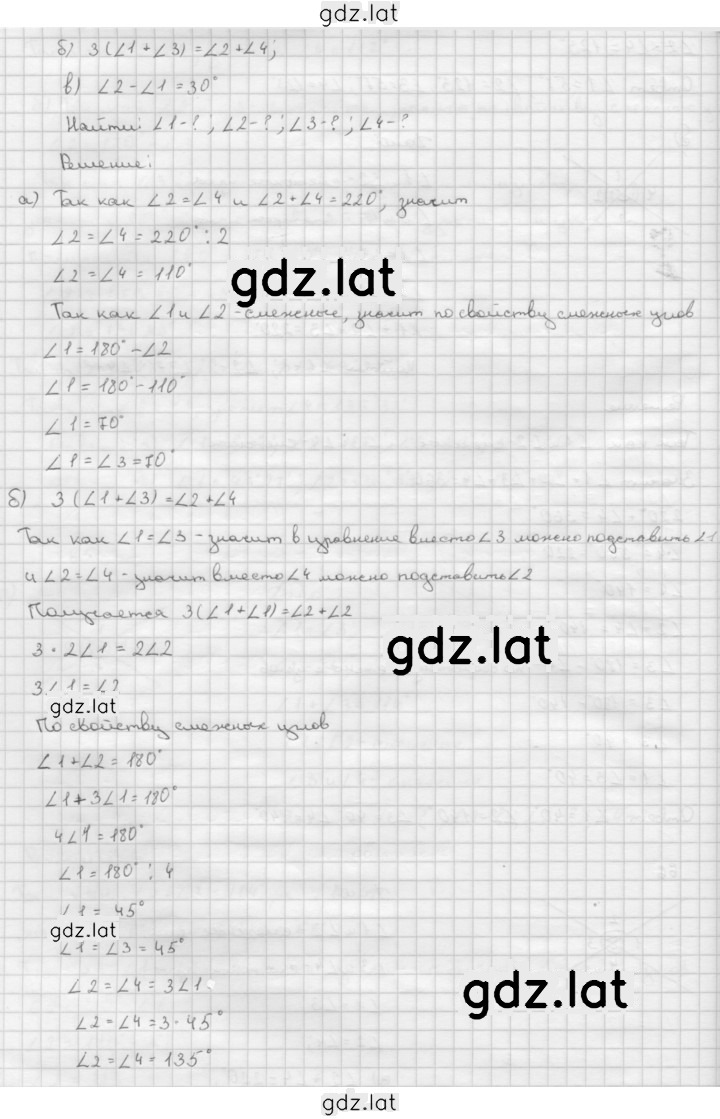 gdz.lat
б) 3(∠1+∠3)=∠2+∠4;
в) ∠2-∠1=30°
Найти: ∠1-?; ∠2-?; ∠3-?; ∠4-?
Решение:
а) Так как ∠2=∠4 и ∠2+∠4=220°, значит
∠2=∠4=220°:2
∠2=∠4=110°
gdz.lat
Так как ∠1 и ∠2 - смежные, значит по свойству смежных углов
∠1=180°-∠2
∠1=180°-110°
∠1=70°
∠1=∠3=70°
б) 3(∠1+∠3)=∠2+∠4
Так как ∠1=∠3 - значит в уравнение вместо ∠3 можно подставить ∠1
и ∠2=∠4 - значит вместо ∠4 можно подставить ∠2
Получается 3(∠1+∠1)=∠2+∠2
gdz.lat
3·2∠1=2∠2
3∠1=∠2
gdz.lat
По свойству смежных углов
∠1+∠2=180°
∠1+3∠1=180°
4∠1=180°
∠1=180°:4
∠1=45°
gdz.lat
∠1=∠3=45°
∠2=∠4=3∠1
gdz.lat
∠2=∠4=3·45°
∠2=∠4=135°
gdz.lat